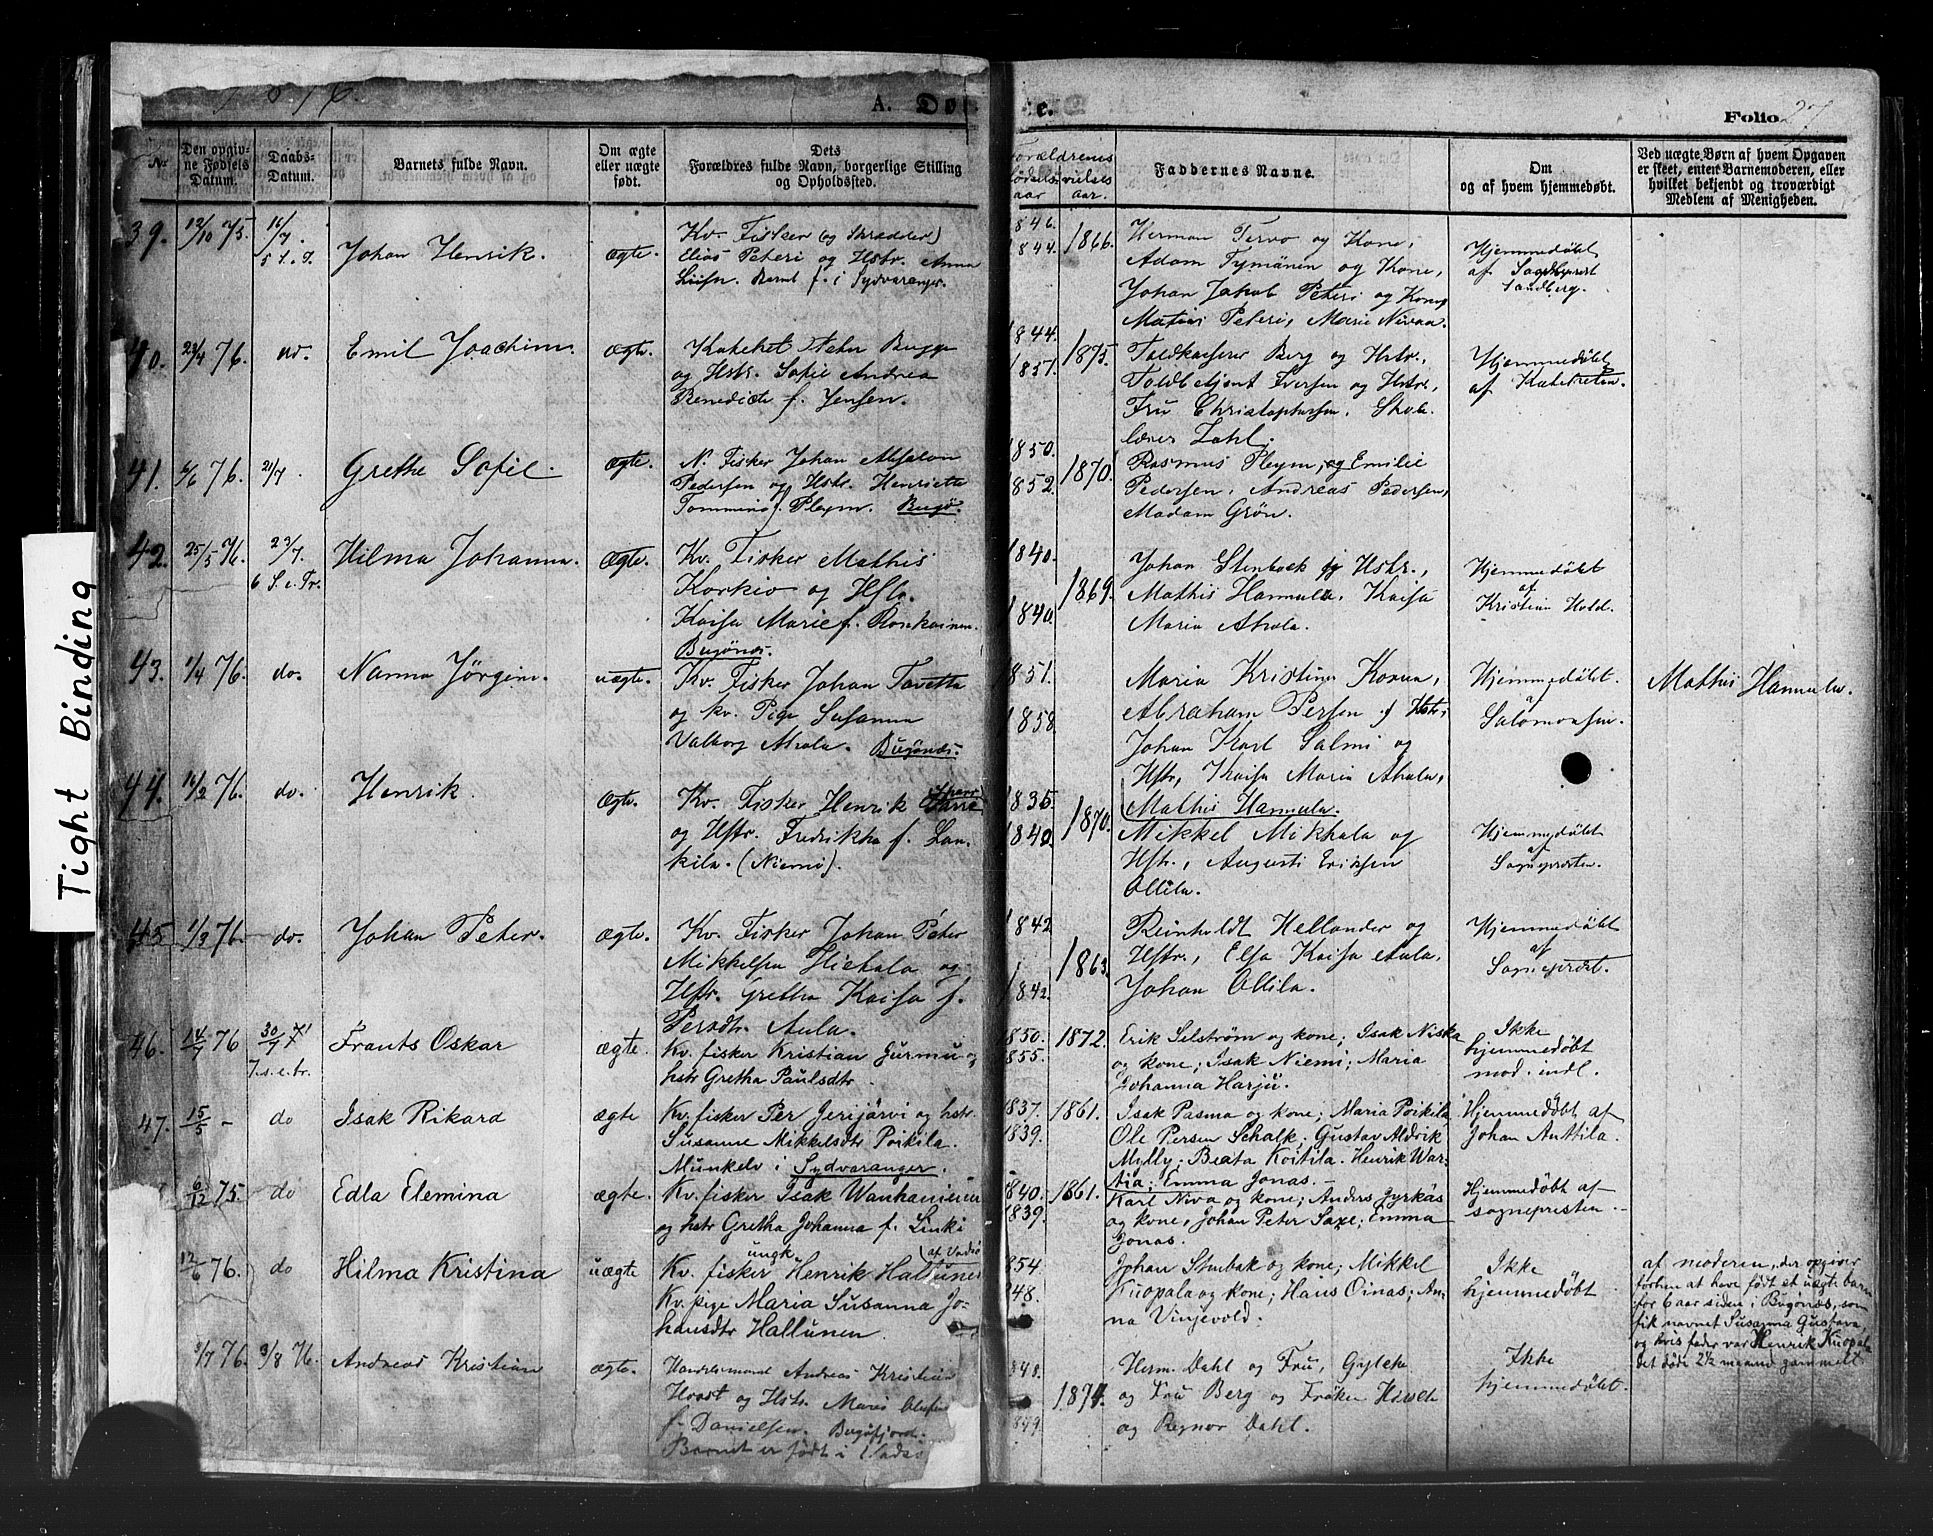 Tight Binding
A. Døb
e.
Folio 27
Nr.
Den opgiv-
ne Fødsels
Datum.
Daabs-
Datum.
Barnets fulde Navn.
Om ægte
eller uægte
født.
Dets
Forældres fulde Navn, borgerlige Stilling
og Opholdssted.
Forældrenes
Faddernes Navne.
Om
og af hvem hjemmedøbt.
Ved uægte Børn af hvem Opgaven
er skeet, enten Barnemoderen, eller
hvilket bekjendt og troværdigt
Medlem af Menigheden.
39. 12/10 75. 16/7.
Johan Henrik. ægte.
Kv. Fisker (og Skrædder)
Elias Peteri og Hstr. Anna
Liisa. Barnet f. i Sydvaranger.
1846.
1844. 1866.
Herman Tervo og Kone,
Adam Tymänen og Kone,
Johan Jakob Peteri og Kone,
Matias Peteri, Marie Nivaa.
Hjemmedøbt
af
Sandberg.
40. 23/4 76. do. Emil Joachim. ægte.
Kateket Peter Bugge
og Hstr. Sofie Andrea
Benedicte f. Jensen.
1844.
1857. 1875.
Toldkasserer Berg og Hstr.,
Toldbetjent Iversen og Hstr.,
Fru Christophersen. Skole
lærer Zahl.
Hjemmedøbt
af Kateketen.
41. 6/6 76. 21/7. Grethe Sofie. ægte.
N. Fisker Johan Absalon
Pedersen og Hstr. Henriette
Pleym. Bugø.
1850.
1852. 1870.
Rasmus Pleym, og Emilie
Pedersen, Andreas Pedersen,
Madam Grøn.
42. 25/5 76. 23/7.
6 S. e. Tr.
Hilma Johanna. ægte.
Kv. Fisker Mathis
Korkio og Hstr.
Kaisa Marie f. Ronkainen.
Bugønes.
1840.
1840. 1869.
Johan Stenback og Hstr.,
Mathis Hannula, Kaisa
Maria Ahola.
Hjemmedøbt
af
Kristian Hold.
43. 1/4 76. do. Nanna Jørgine. uægte.
Kv. Fisker Johan Tavetta
og kv. Pige Susanna
Valborg Ahola. Bugønes.
1851.
1858.
Maria Kristine Korva,
Abraham Persen og Hstr;
Johan Karl Salmi og
Hstr, Kaisa Maria Ahola,
Mathis Hannula.
Hjemmedøbt
af
Salomonsen.
Mathis Hannula.
44. 16/2 76. do. Henrik. ægte.
Kv. Fisker Henrik
og Hstr. Fredrikka f. Lan-
kila. (Niemi).
1835.
1840. 1870.
Mikkel Mikkala og
Hstr., Augusti Eriksen
Ollila.
Hjemmedøbt
af
Sognepræsten.
45. 1/3 76. do. Johan Peter. ægte.
Kv. Fisker Johan Peter
Mikkelsen Hietala og
Hstr. Gretha Kaisa f.
Persdtr. Aula.
1842
1842. 1863.
Reinholdt Hellander og
Hstr., Elsa Kaisa Aula.
Johan Ollila.
Hjemmedøbt
af
Sognepræst.
46. 14/7 76 30/7
7. s. e. tr.
Frants Oskar ægte.
Kv. fisker Kristian Jurmu og
hstr Gretha Paulsdtr.
1850.
1855. 1872.
Erik Selström og kone; Isak Niska
og kone; Isak Niemi; Maria
Johanna Harju.
Ikke
hjemmedøbt
mod. indl.
47. 15/5 - do Isak Rikard ægte
Kv. fisker Per Jerijärvi og hstr
Susanne Mikkelsdtr Poikila.
Munkelv i Sydvaranger.
1837.
1839. 1861.
Isak Pasma og kone; Maria Poikila
Ole Persen Schalk; Gustav Aldrik
Mylly; Beata Koitila. Henrik War-
tia; Emma Jonas. -
Hjemmedøbt af
Johan Anttila.
6/12 75. do Edla Elemina ægte.
Kv. fisker Isak Wanhanienen
og hstr Gretha Johanna f. Linki
1840.
1839. 1861.
Karl Niva og kone; Anders Jyrkäs
og kone, Johan Peter Saxe; Emma
Jonas.
Hjemmedøbt af
sognepresten.
12/6 76. do Hilma Kristina uægte
Kv. fisker ungk. Henrik Hallunen (af Vadsø
Kv. pige Maria Susanna Jo-
hansdtr Hallunen.
1854.
1848.
Johan Stubak og kone; Mikkel
Kuopala og kone; Hans Oinas; An-
na Vinjevold.
Ikke
hjemmedøbt
af moderen, der opgiver
forhen at have født et uægte barn
for 6 aar siden i Bugønæs, som
fik navnet Susanna Gustava,
og hvis fader var Henrik Kuopala
det døde 2½ maaned gammelt
3/7 76. 3/8 76. Andreas Kristian ægte.
Handelsmand Andreas Kristian
og Hstr. Marie Olufine
f. Danielsen. Bugøfjord.
Barnet er født i Vadsø
1848.
1849. 1874.
Herm. Dahl og Fru, Gylche
og Fru Berg og Frøken
og Ragnar Dahl.
Ikke
hjemmedøbt.